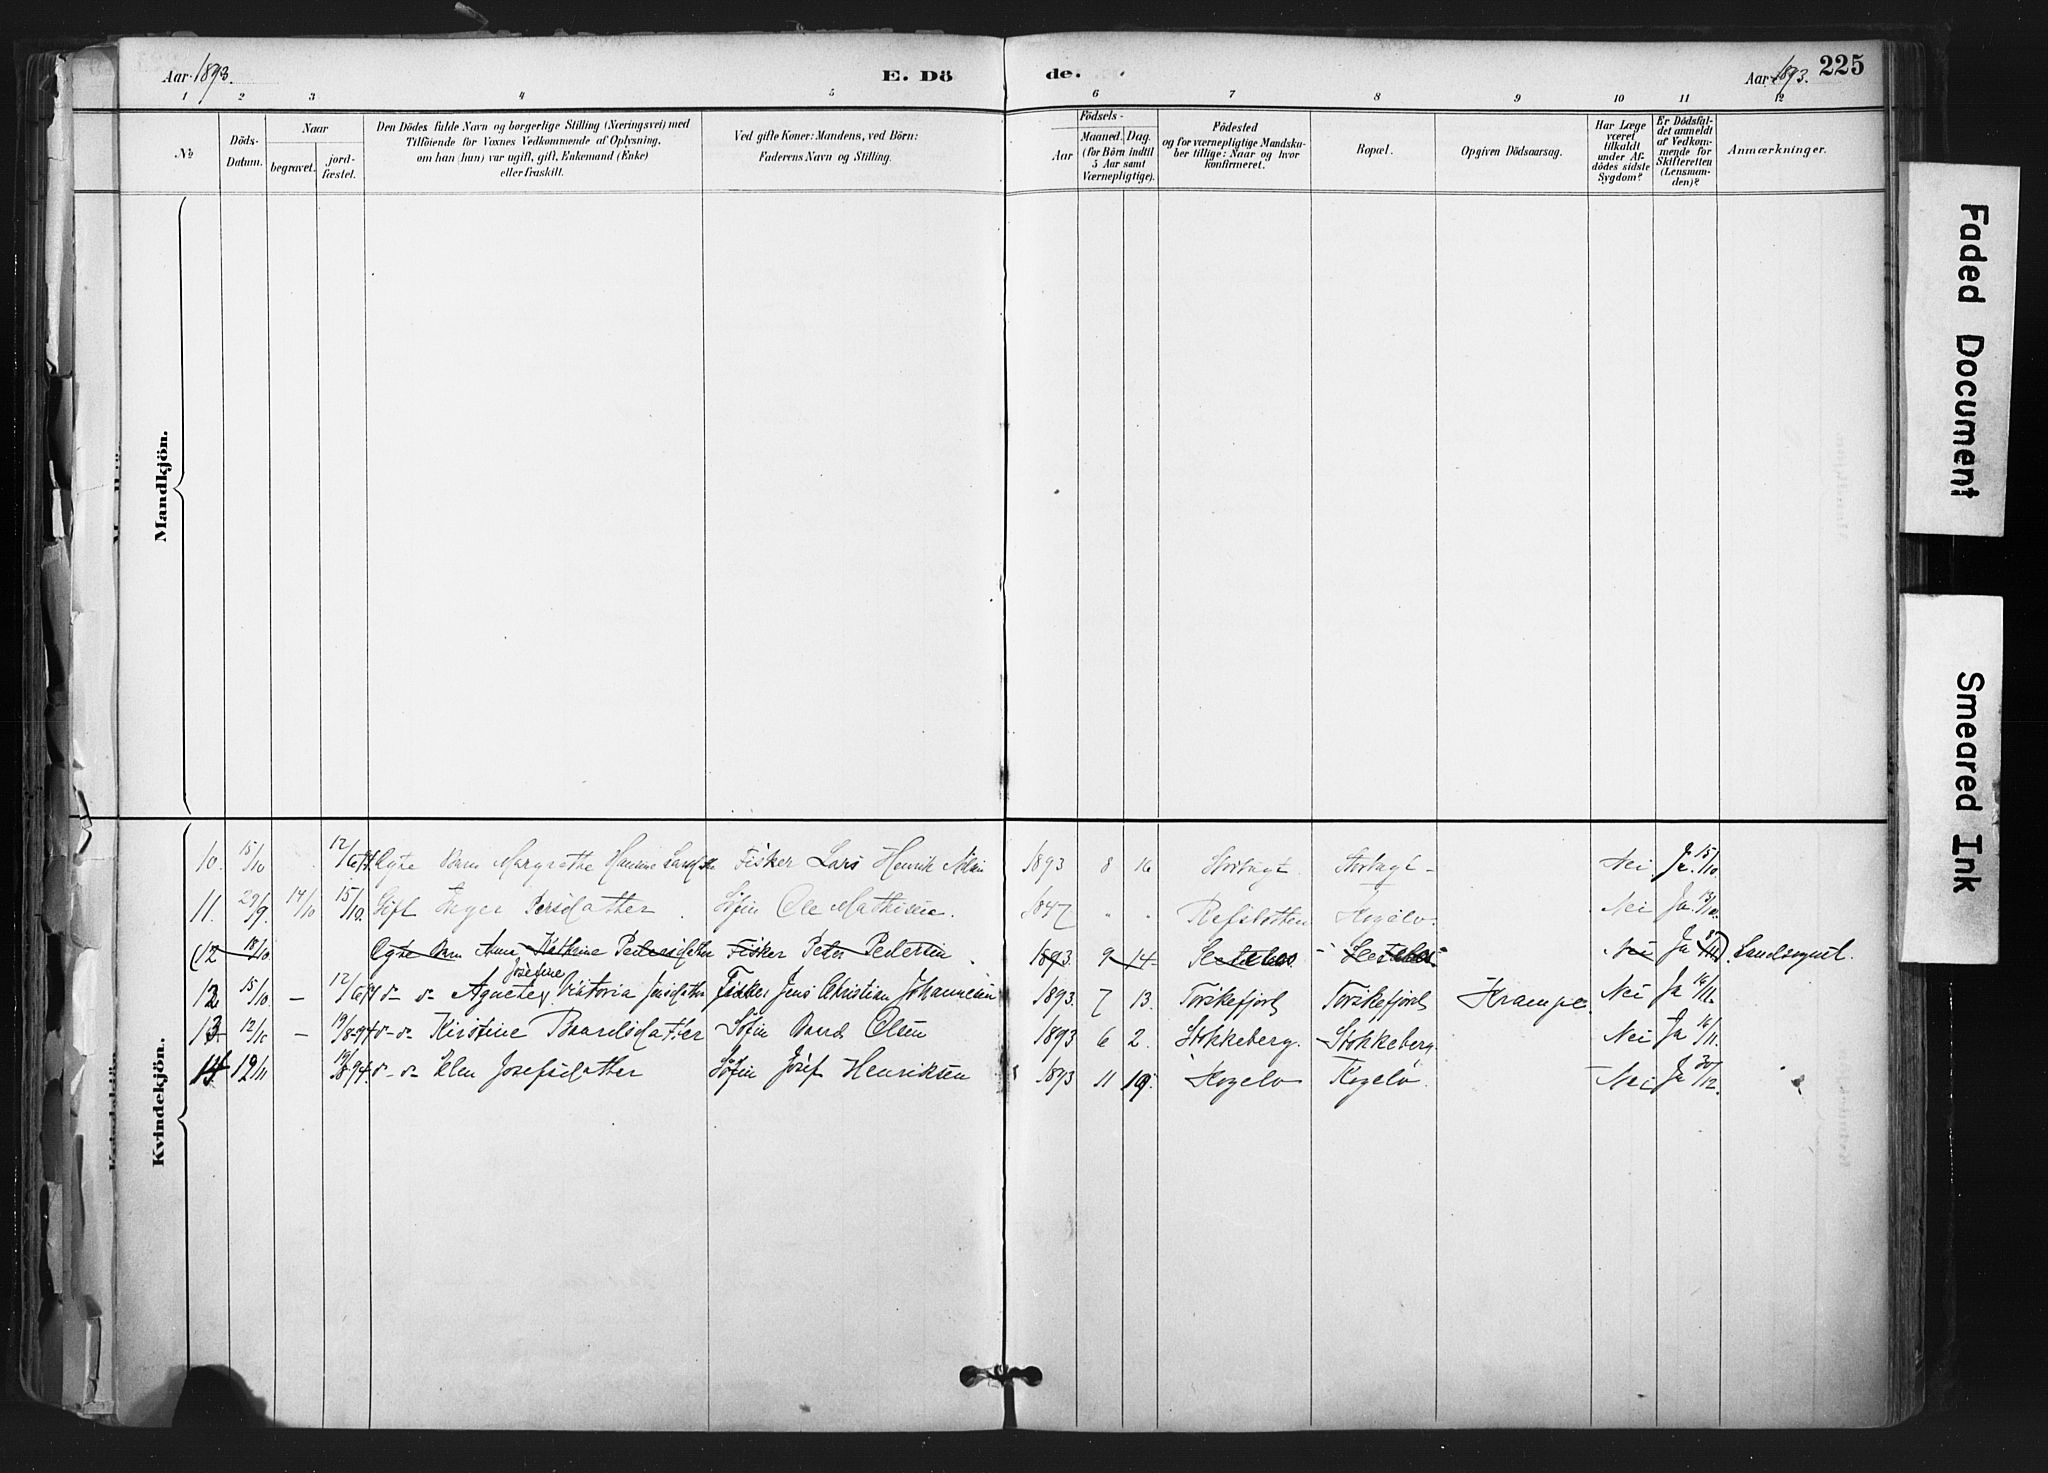 Aar 1893.
E. Dö
de.
Aar 1893.
225
1 2 3 4 5 6 7 8 9 10 11 12
No
Döds-
Datum.
Naar
begravet.
jord-
fæstet.
Den Dödes fulde Navn og borgerlige Stilling (Næringsvei) med
Tilföiende for Voxnes Vedkommende af Oplysning,
om han (hun) var ugift, gift, Enkemand (Enke)
eller fraskilt.
Ved gifte Koner: Mandens, ved Börn:
Faderens Navn og Stilling.
Födsels-
Aar
Maaned. Dag.
(for Börn indtil
5 Aar samt
Værnepligtige).
Födested
og for værnepligtige Mandska-
ber tillige: Naar og hvor
konfirmeret.
Bopæl.
Opgiven Dödsaarsag.
Har Læge
været
tilkaldt
under Af-
dödes sidste
Sygdom?
Er Dödsfal-
det anmeldt
af Vedkom-
mende for
Skifteretten
(Lensman-
den)?
Anmærkninger.
Mandkjön.
Kvindekjön.
10. 15/10 Ægte Barn Margrethe Fisker Lars Henrik 1893 8 16 Nei Ja 15/10.
11. 29/9. 14/10 15/10. Gift Inger Persdatter Ole Mathisen. 1847 " " Nei Ja
12 18/10 Ægte Barn Anne Kathrine Pedersdatter Fisker Peter Pedersen. 1893 9 14 Nei Ja Landsognet.
12 15/10 - Agnete Josefine Viktoria Jensdatter Fisker Jens Christian Johannesen 1893. 7 13. Torskefjord Torskefjord Krampe. Nei Ja 16/11.
13 12/10 - 19/8-94 Kirstine Baardsdatter Baard Olsen 1893 6 2. Stokkeberg. Stokkeberg. Nei Ja 16/11.
14 19/8 94. Elen Josefsdatter Josef Henriksen 1893 11 19. Nei Ja 30/12.
Faded Document
Smeared Ink